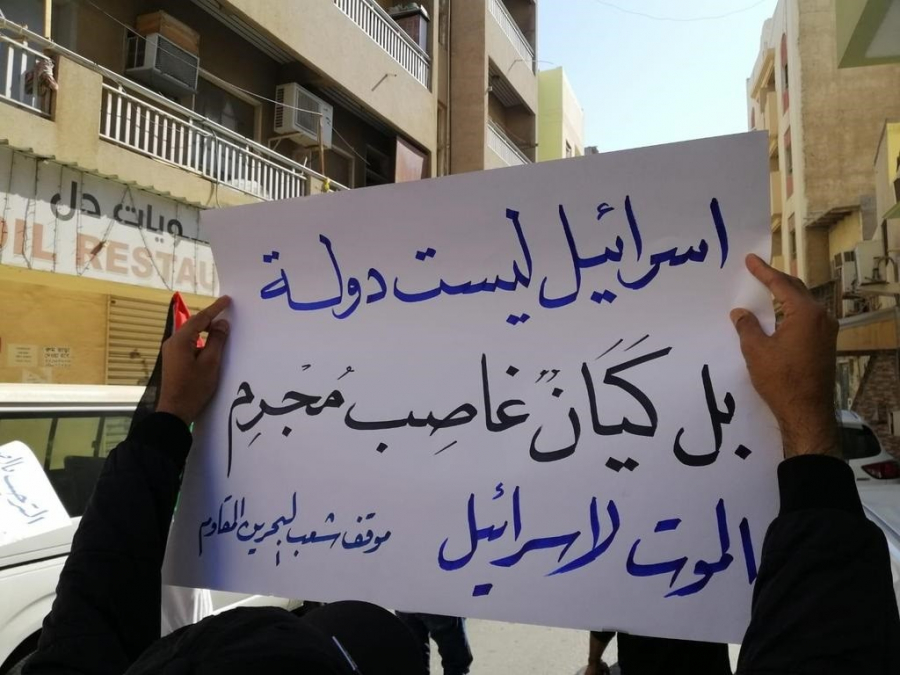 ويات دل
OIL RESTAU
اسرائيل ليست دولة
بل كَيَانٌ غاصِب مُجْرِم
الموت لاسرائيل
موقف شعب البحرين المقاوم